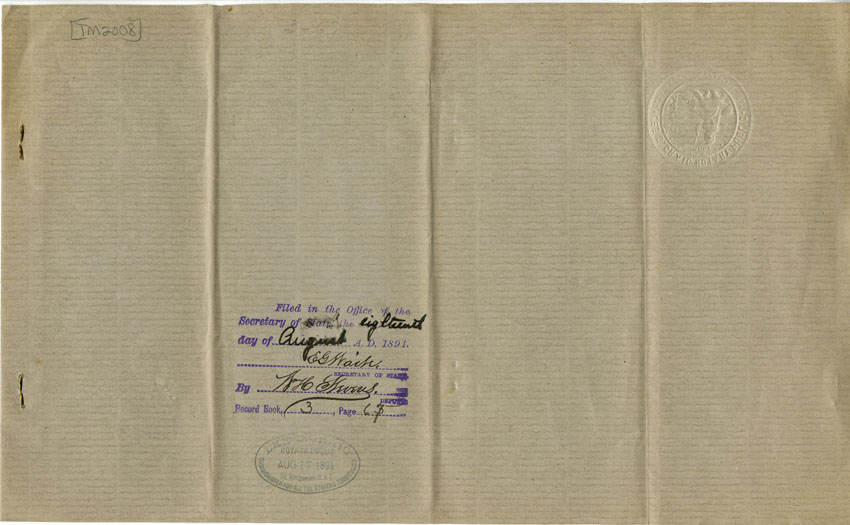 TM2008
Filed in the Office of the
Secretary of State the eighteenth
day of August A.D. 1891.
E G Waite.
SECRETARY OF STATE
By W H Stevens.
DEPUTY
Record Book, 3, Page 67
AUG 17 1891